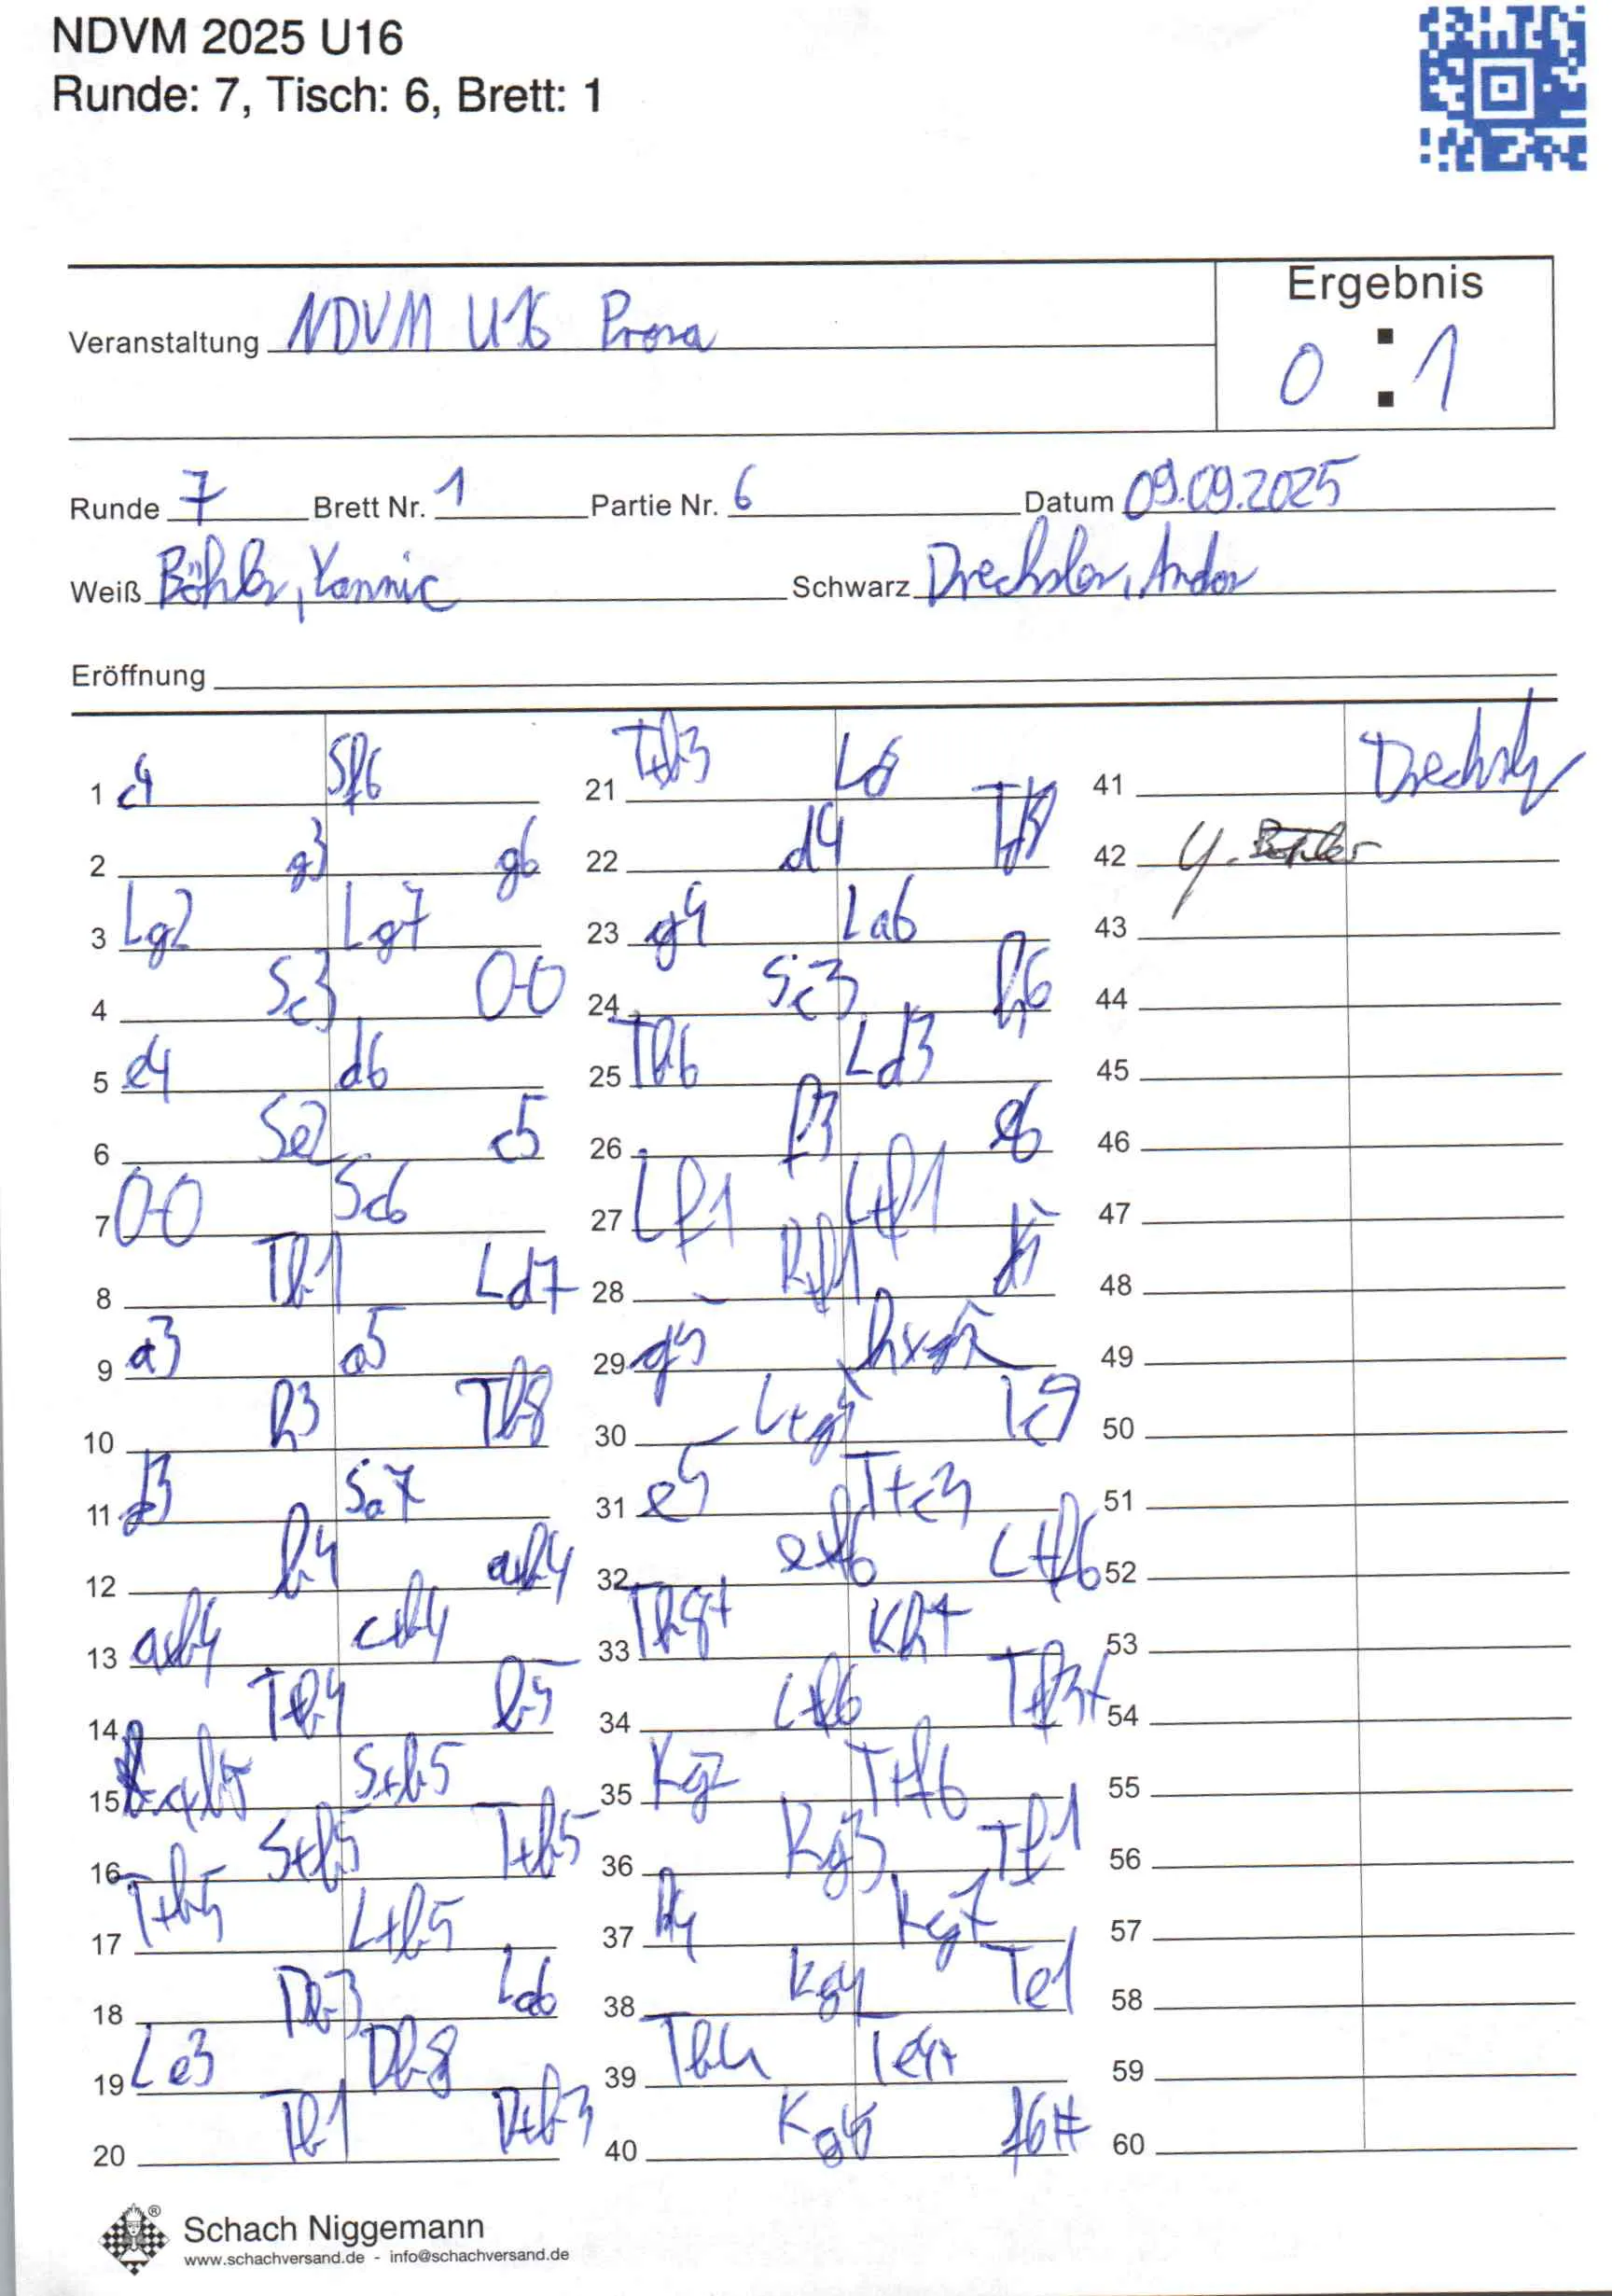 NDVM 2025 U16
Runde: 7, Tisch: 6, Brett: 1
Ergebnis
Veranstaltung NDVM U16 Prora
0 : 1
Runde 7 Brett Nr. 1 Partie Nr. 6 Datum 09.09.2025
Weiß Böhler, Yannic Schwarz Drechsler, Andor
Eröffnung
1 c4 Sf6
2 g3 g6
3 Lg2 Lg7
4 Sc3 0-0
5 e4 d6
6 Se2 c5
7 0-0 Sc6
8 Tb1 Ld7
9 a3 a5
10 h3 Tb8
11 d3 Sa7
12 b4 axb4
13 axb4 cxb4
14 Txb4 b5
15 cxb5 Sxb5
16 Sxb5 Txb5
17 Txb5 Lxb5
18 Db3 La6
19 Le3 Db8
20 Tb1 Dxb3
21 Txb3
22 d4
23 g4 La6
24 Sc3 h6
25 Tb6 Ld3
26 f3 e6
27 Lf1 Lxf1
28 Kxf1 d5
29 g5 hxg5
30 Lxg5 Tc8
31 e5 Txc3
32 exf6 Lxf6
33 Tb8+ Kh7
34 Lxf6 Txf3+
35 Kg2 Txf6
36 Kg3 Tf1
37 h4 Kg7
38 Kg4 Te1
39 Tb4 Te4+
40 Kg5 f6#
41 Drechsler
42 Y. Böhler
43
44
45
46
47
48
49
50
51
52
53
54
55
56
57
58
59
60
®
Schach Niggemann
www.schachversand.de - info@schachversand.de